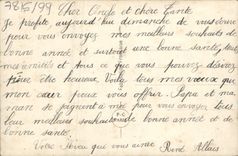 7815/99
Cher Oncle et chère Tante
Je profite aujourd'hui dimanche de vous donne
pour vous envoyer mes meilleurs souhaits de
bonne année et surtout une bonne santé, tout
mes amitiés et tous ce que vous pouvez désirez
être heureux. Voilà tous mes vœux que
mon cœur peut vous offrir. Papa et ma
man se joignent à moi pour vous envoyer tous
leur meilleur souhait de bonne année et de
bonne santé.
Votre neveu qui vous aime René Allais